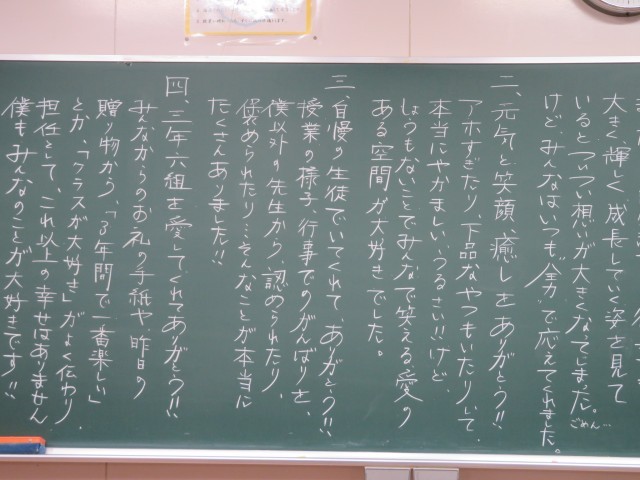 大きく輝しく成長していく姿を見て
いるとついつい想いが大きくなってしまった。ごめん…
けど、みんなはいつも"全力"で応えてくれました。
二、元気と笑顔、癒しをありがとう!!
アホすぎたり、下品なやつもいたりして、
本当にやかましい、うるさい!!けど、
しょうもないことでみんなで笑える愛の
ある空間が大好きでした。
三、自慢の生徒でいてくれて、ありがとう!!
授業の様子、行事でのがんばりを、
僕以外の先生から、認められたり、
褒められたり…そんなことが本当に
たくさんありました!!
四、三年六組を愛してくれてありがとう!!
みんなからのお礼の手紙や、昨日の
贈り物から、「3年間で一番楽しい」
とか、「クラスが大好き」がよく伝わり、
担任として、これ以上の幸せはありません
僕もみんなのことが大好きです!!